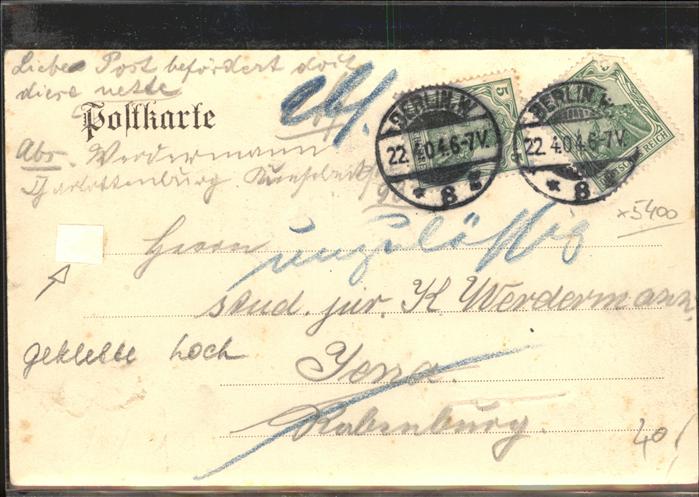 Liebe Post befördert doch
diese nette
Postkarte
Abs. Werdermann
Charlottenburg
5
BERLIN.W.
22.4.04.6-7V.
* 8
BERLIN.W.
22.4.04.6-7V.
* 8
REICH
x5400
unzulässig
Herrn
stud. jur. K Werdermann
geklebte hoch
Jena.
Rabenburg.
40